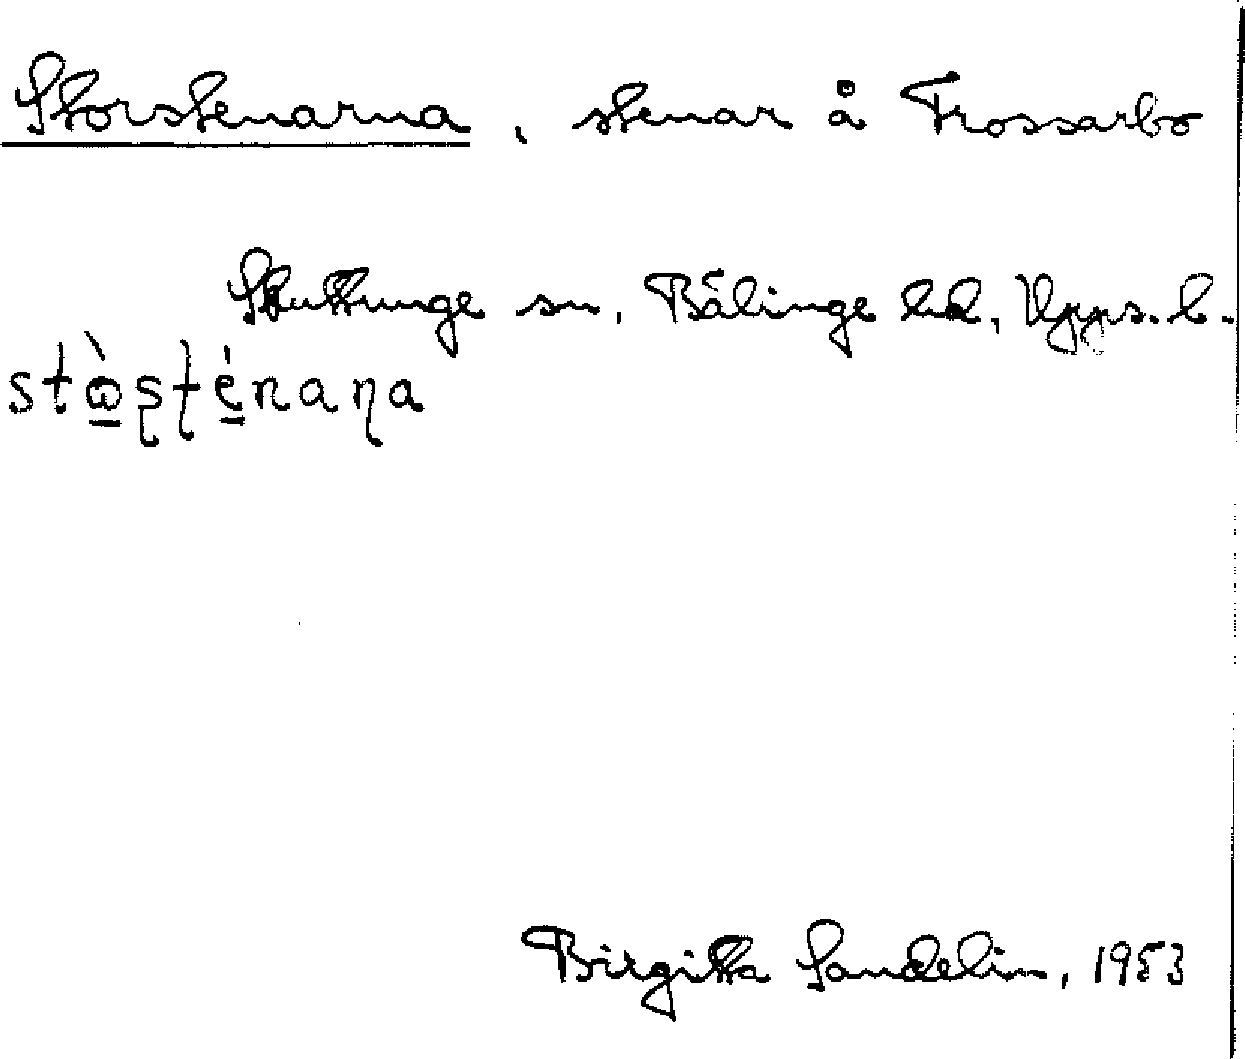 Storstenarna, stenar å Trossarbo
Skuttunge sn, Bälinge hd, Upps. l.
stὼșțénaɳa
Birgitta Sandelin, 1953